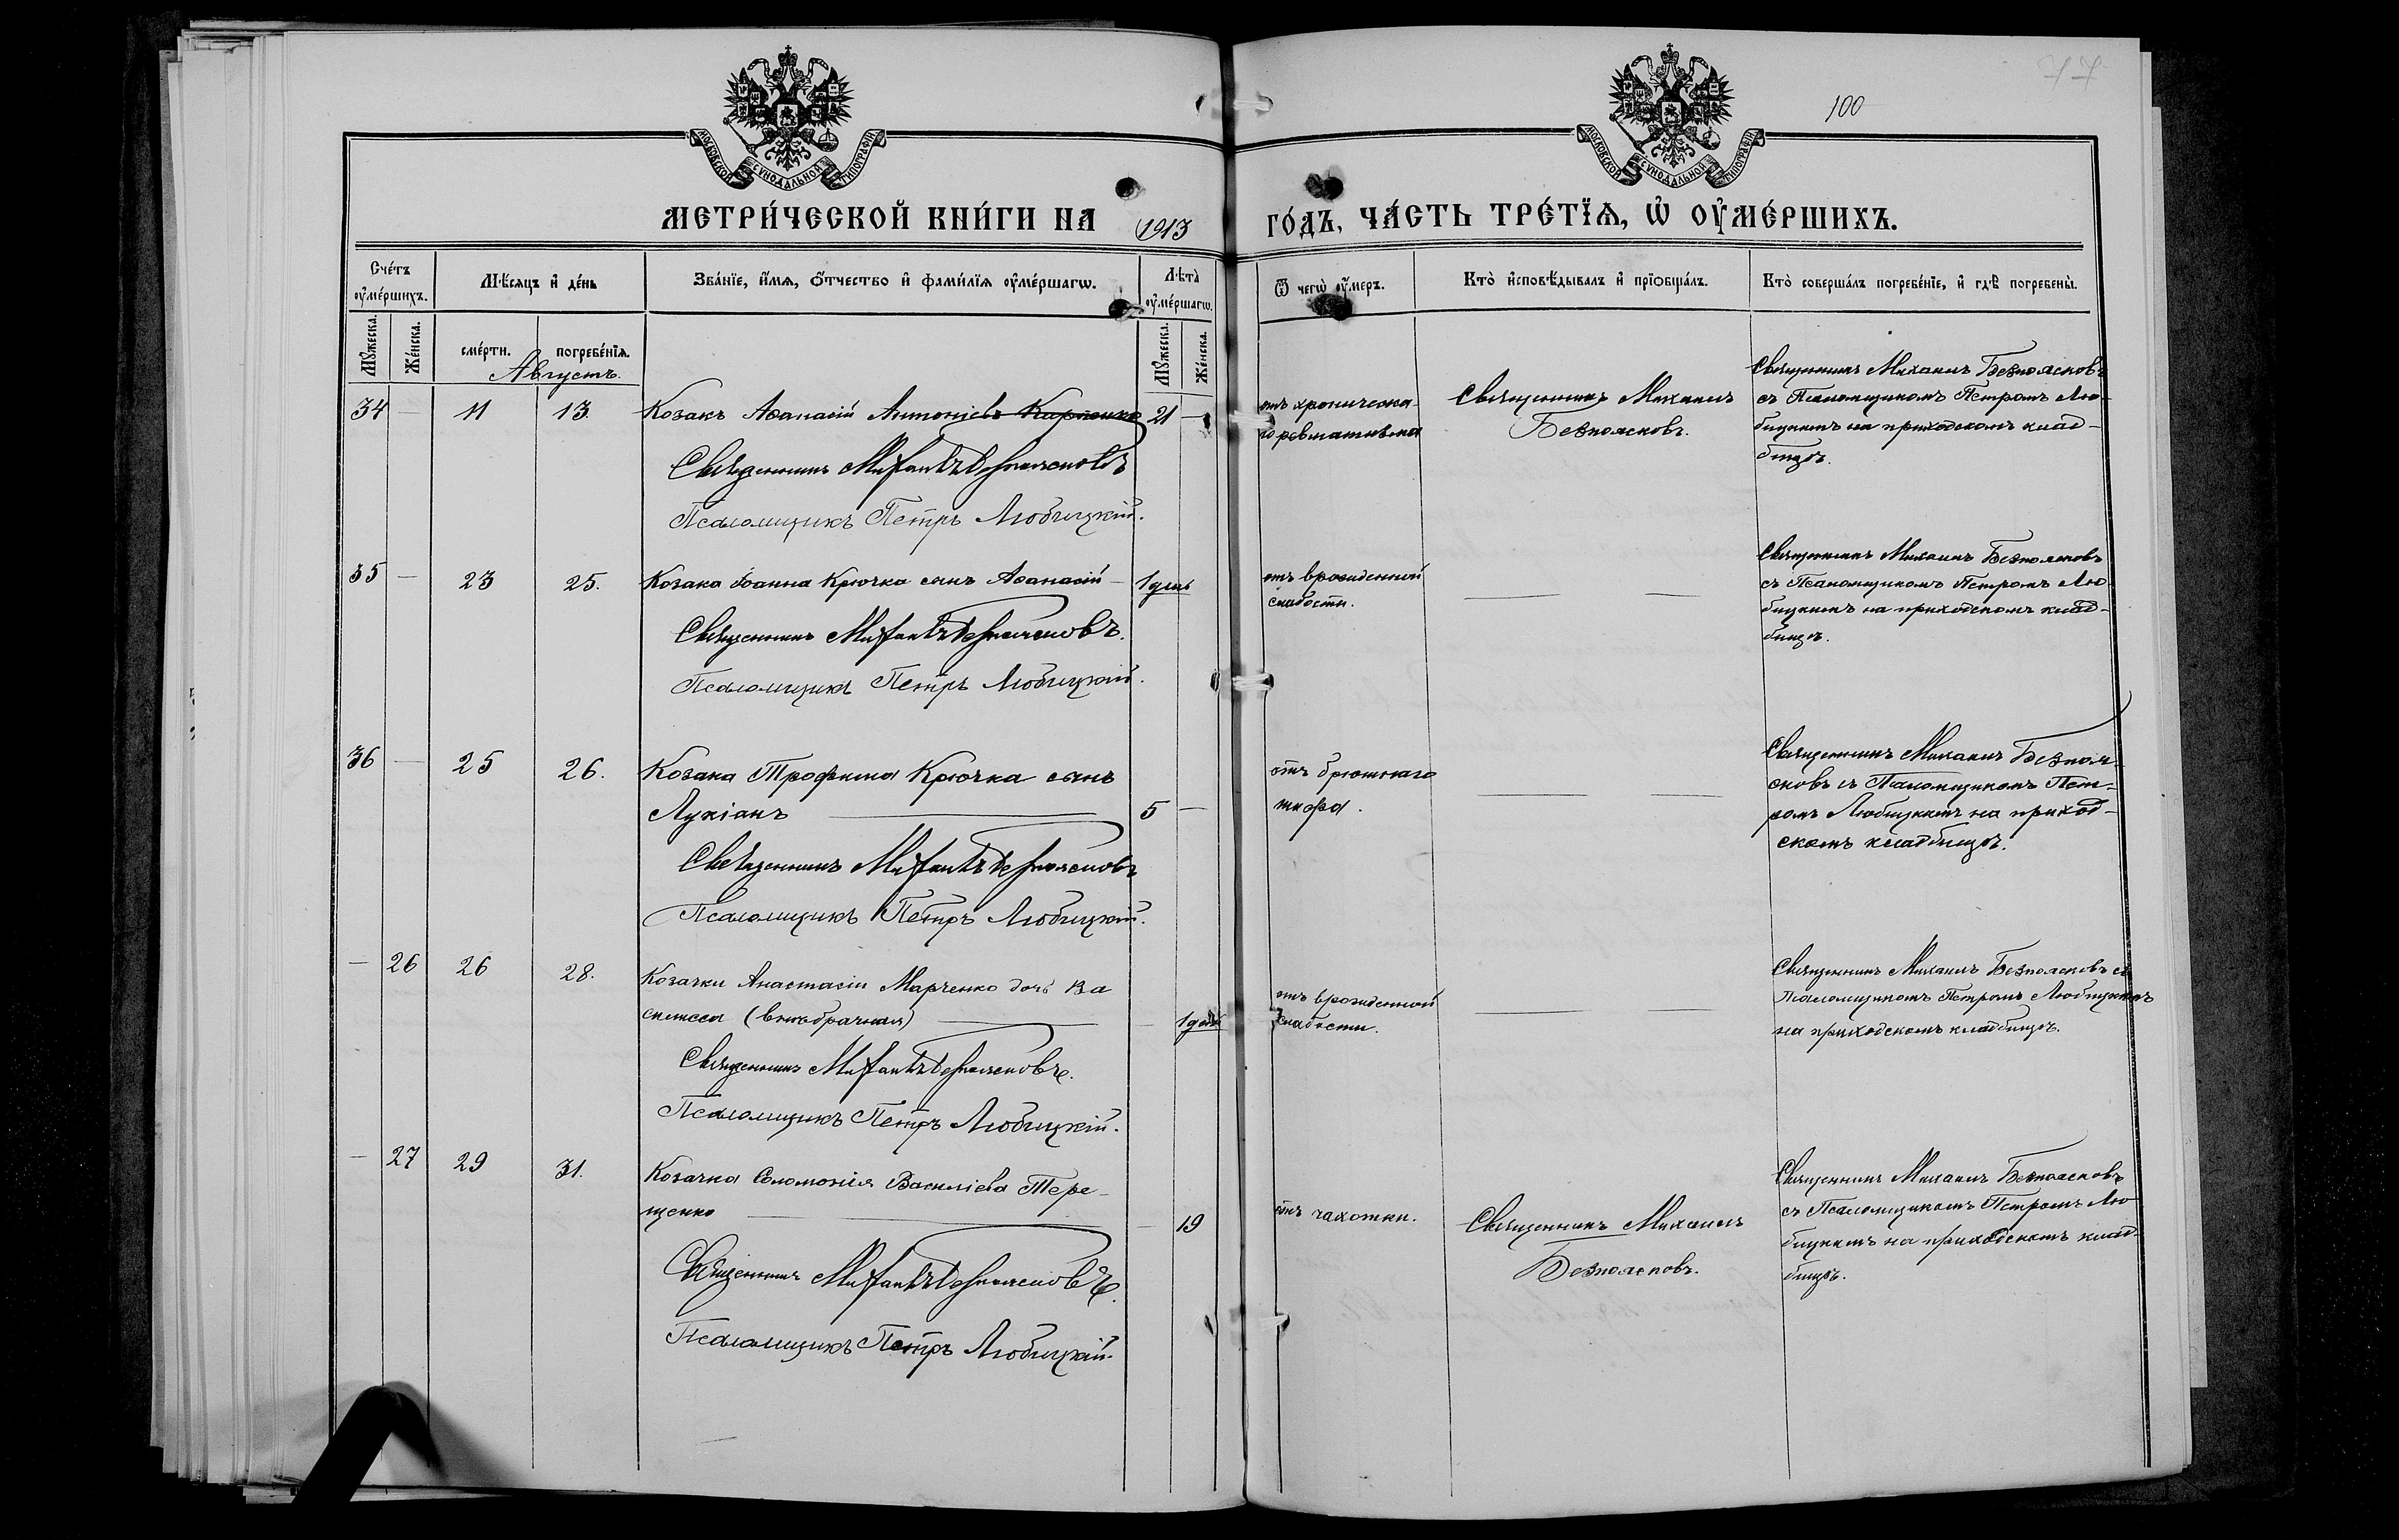 77
100
МОСКОВСКОЙ СѴНОДАЛЬНОЙ ТИПОГРАФІИ
МОСКОВСКОЙ СѴНОДАЛЬНОЙ ТИПОГРАФІИ
МЕТРИ́ЧЕСКОЙ КНИ́ГИ НА 1913 ГО́ДЪ, ЧА́СТЬ ТРЕ́ТЇѦ, Ѽ ОУ҆МЕ́РШИХЪ.
Сче́тъ оу҆ме́ршихъ.
Мѣ́сяцъ и҆ де́нь
Зва́нїе, и҆́мѧ, ѻ҆́тчество и҆ фами́лїѧ оу҆ме́ршагѡ.
Лѣта̀ оу҆ме́ршагѡ.
Ѿ чегѡ̀ оу҆́меръ.
Кто̀ и҆сповѣ́дывалъ и҆ прїѻбща́лъ.
Кто̀ соверша́лъ погребе́нїе, и҆ гдѣ̀ погребены̀.
Мꙋ́жеска.
Же́нска.
сме́рти.
погребе́нїѧ.
Мꙋ́жеска.
Же́нска.
Августъ.
34 — 11 13
Козакъ Аѳанасій Антоніевъ Карпенко 21 —
Священникъ Михаилъ Безпоясковъ
Псаломщикъ Петръ Любицкій.
отъ хроническа-
го ревматизма
Священникъ Михаилъ
Безпоясковъ.
Священникъ Михаилъ Безпоясковъ
съ Псаломщикомъ Петромъ Лю-
бицкимъ на приходскомъ клад-
бищѣ.
35 — 23 25.
Козака Іоанна Крючка сынъ Аѳанасій — 1 день
Священникъ Михаилъ Безпоясковъ.
Псаломщикъ Петръ Любицкій.
отъ врожденной
слабости.
— —
Священникъ Михаилъ Безпоясковъ
съ Псаломщикомъ Петромъ Лю-
бицкимъ на приходскомъ клад-
бищѣ.
36 — 25 26.
Козака Трофима Крючка сынъ
Лукіанъ — 5 —
Священникъ Михаилъ Безпоясковъ
Псаломщикъ Петръ Любицкій.
отъ брюшнаго
тифа.
— —
Священникъ Михаилъ Безпоя-
сковъ съ Псаломщикомъ Пет-
ромъ Любицкимъ на приход-
скомъ кладбищѣ.
— 26 26 28.
Козачки Анастасіи Марченко дочь Ва
силисса (внѣбрачная) — — 1 день
Священникъ Михаилъ Безпоясковъ.
Псаломщикъ Петръ Любицкій.
отъ врожденной
слабости.
— —
Священникъ Михаилъ Безпоясковъ съ
Псаломщикомъ Петромъ Любицкимъ
на приходскомъ кладбищѣ.
— 27 29 31.
Козачка Соломонія Василіева Тере-
щенко — — 19
Священникъ Михаилъ Безпоясковъ.
Псаломщикъ Петръ Любицкій.
отъ чахотки.
Священникъ Михаилъ
Безпоясковъ.
Священникъ Михаилъ Безпоясковъ
съ Псаломщикомъ Петромъ Лю
бицкимъ на приходскомъ клад-
бищѣ.